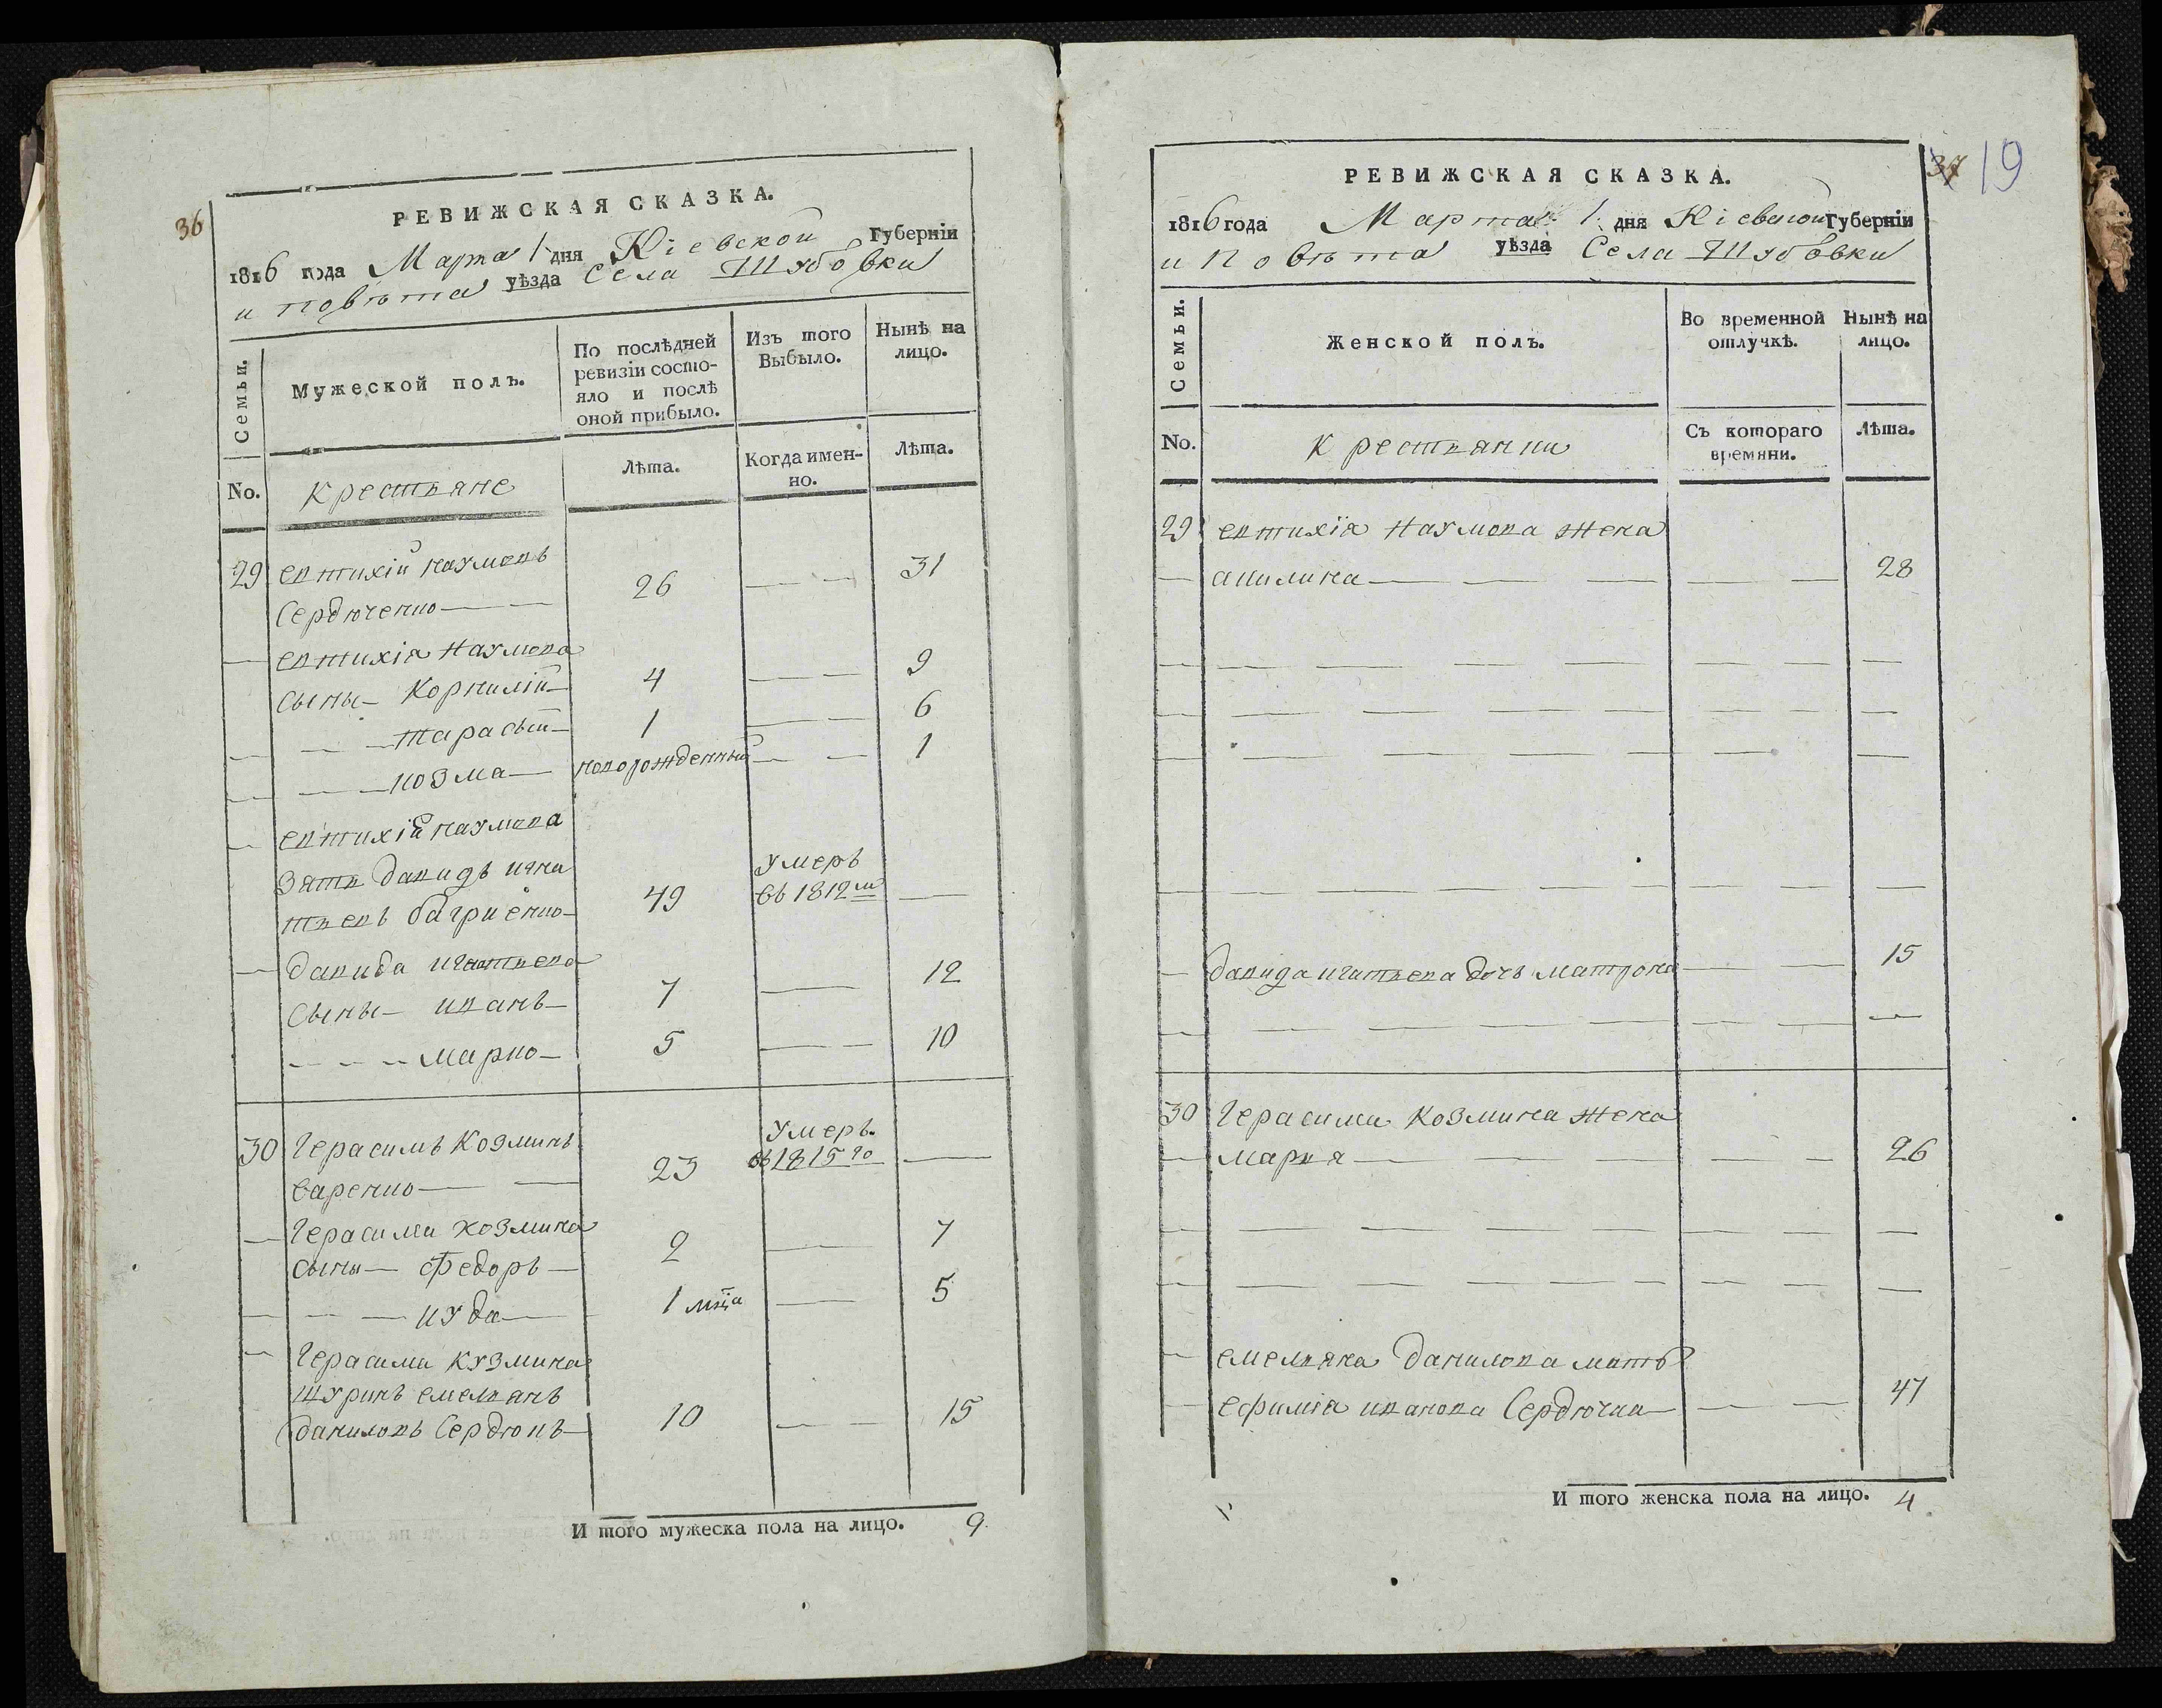 36
РЕВИЖСКАЯ СКАЗКА.
1816 года Марта 1 дня Кіевской губерніи
и повѣта уѣзда Села Шубовки
Семьи.
Мужеской полъ.
По послѣдней ревизіи состо-
яло и послѣ оной прибыло.
Изъ того Выбыло.
Нынѣ на лицо.
No.
крестьяне
Лѣта.
Когда имен-
но.
Лѣта.
29 евтихій наумовъ
Сердюченко — 26 — — 31
— евтихія наумова
сыны — Корнилій — 4 — — 9
— — — тарасій — 1 — — 6
— — — козма — новорожденный — — 1
— евтихія наумова
зять давидъ игна
тьевъ багриенко — 49 умеръ въ 1812м —
— давида игнатьева
сыны — иванъ — 7 — 12
— — — марко — 5 — — 10
30 Герасимъ Козминъ
варенко — — 23 умеръ въ 1815го —
— Герасима козмина
сыны — Федоръ — 2 — 7
— — — иуда — 1 мца — 5
— Герасима кузмина
шуринъ емельянъ
даниловъ Сердюкъ — 10 — — 15
И того мужеска пола на лицо. 9
37 19
РЕВИЖСКАЯ СКАЗКА.
1816 года Марта 1 дня Кіевской губерніи
и Повѣта уѣзда Села Шубовки
Семьи.
Женской полъ.
Во временной отлучкѣ.
Нынѣ на лицо.
No.
крестьянки
Съ котораго времяни.
Лѣта.
29 евтихія Наумова жена
— акилина — — — — — 28
— давида игнатьева дочь матрона — — 15
30 Герасима Козмина жена
— марья — — — — — 26
— емельяна данилова мать
— ефимія иванова Сердючка — — — 47
И того женска пола на лицо. 4